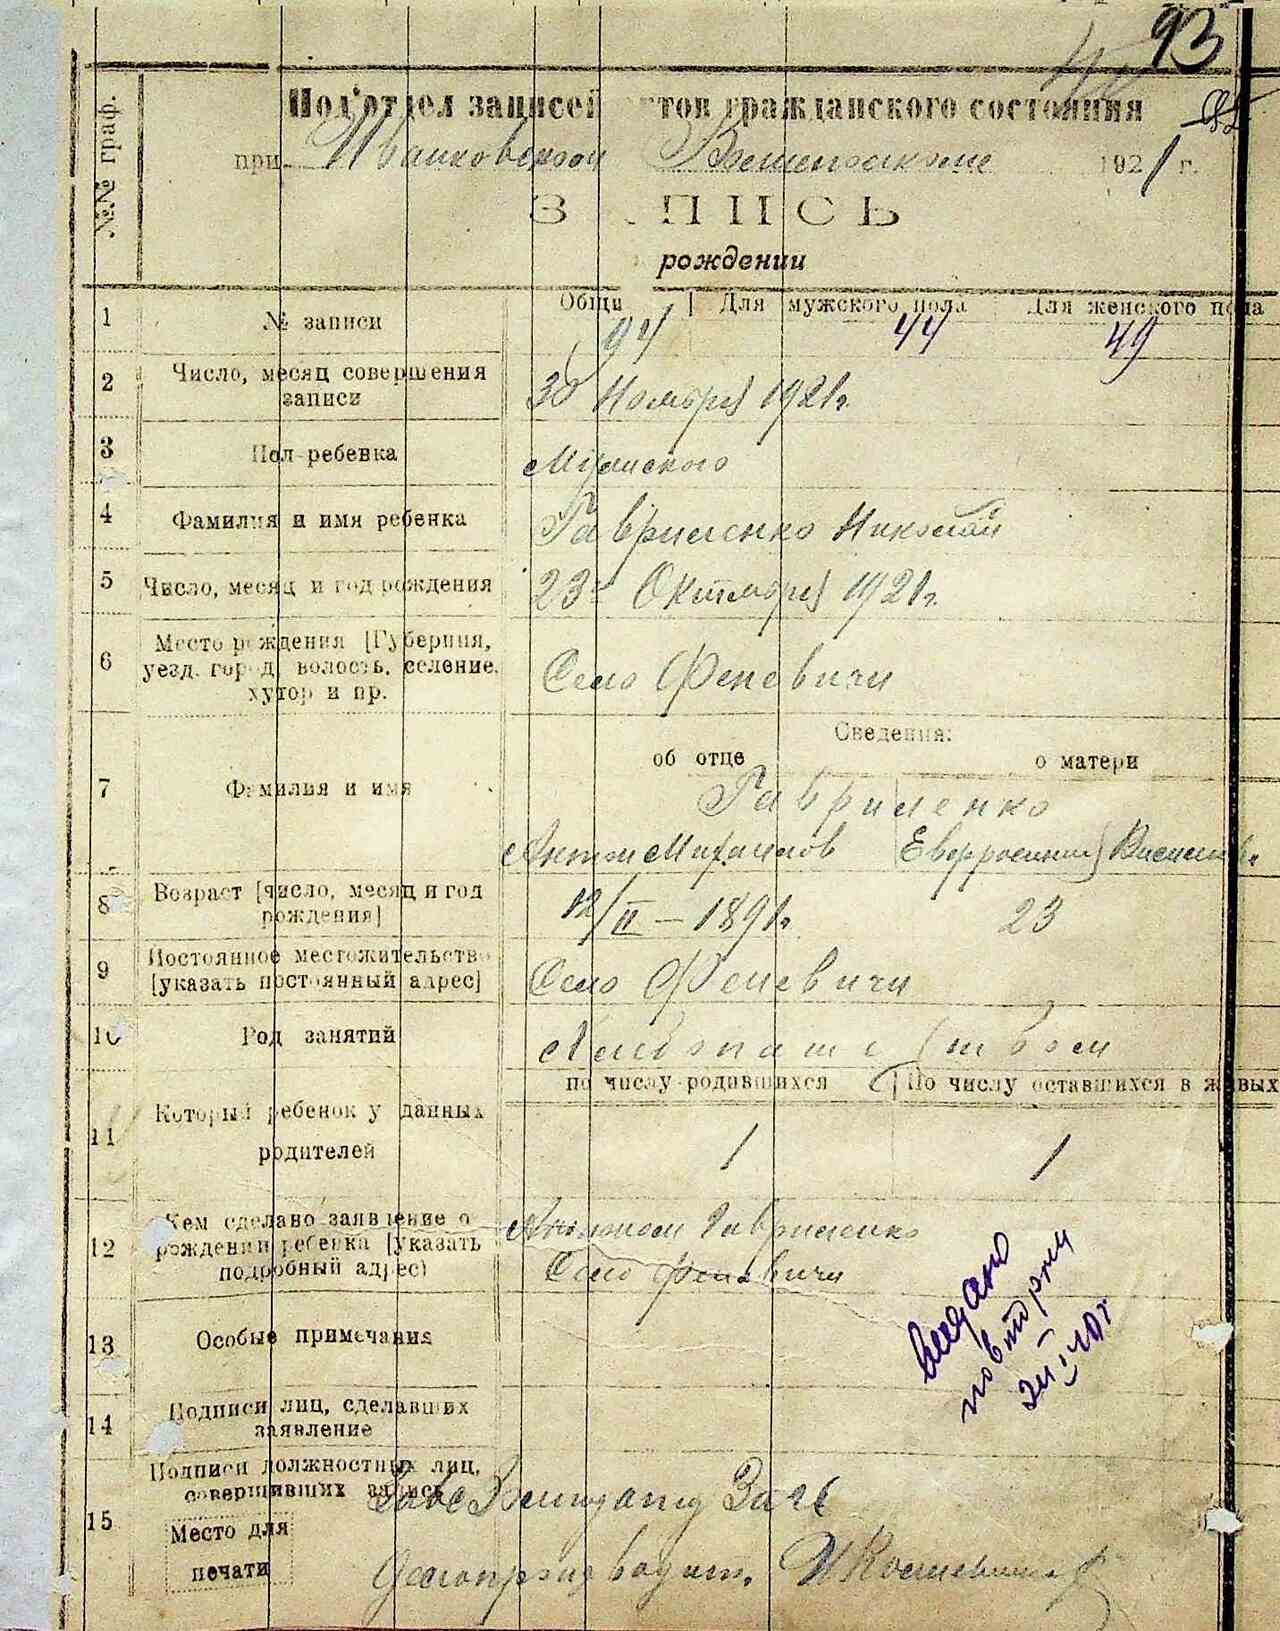 93
№№ граф.
Под'отдел записей ктов гражданского состояния
при Иванковской 1921 г.
З ПИСЬ
рождении
Общи Для мужского пола Для женского пола
1 № записи 44 49
2 Число, месяц совершения записи
30 Ноября 1921 г.
3 Пол ребенка Мужского
4 Фамилия и имя ребенка Гавриленко Николай
5 Число, месяц и год рождения 23 Октября 1921 г.
6 Место рождения [Губерния,
уезд, город, волость, селение,
хутор и пр.
Село Феневичи
Сведения:
об отце о матери
7 Фамилия и имя Гавриленко
Антон Михайлов Евфросиния
8 Возраст [число, месяц и год
рождения]
12/II – 1891 г. 23
9 Постоянное местожительство
[указать постоянный адрес]
Село Феневичи
10 Род занятий Хлебопашеством
по числу родившихся По числу оставшихся в живых
11 Который ребенок у данных
родителей
1 1
12 Кем сделано заявление о
рождении ребенка [указать
подробный адрес)
Антоном Гавриленко
Село Феневичи
13 Особые примечания
выдано
14 Подписи лиц, сделавших
заявление
15 Подписи должностных лиц,
совершивших запись
Место для
печати
Делопроизводит.